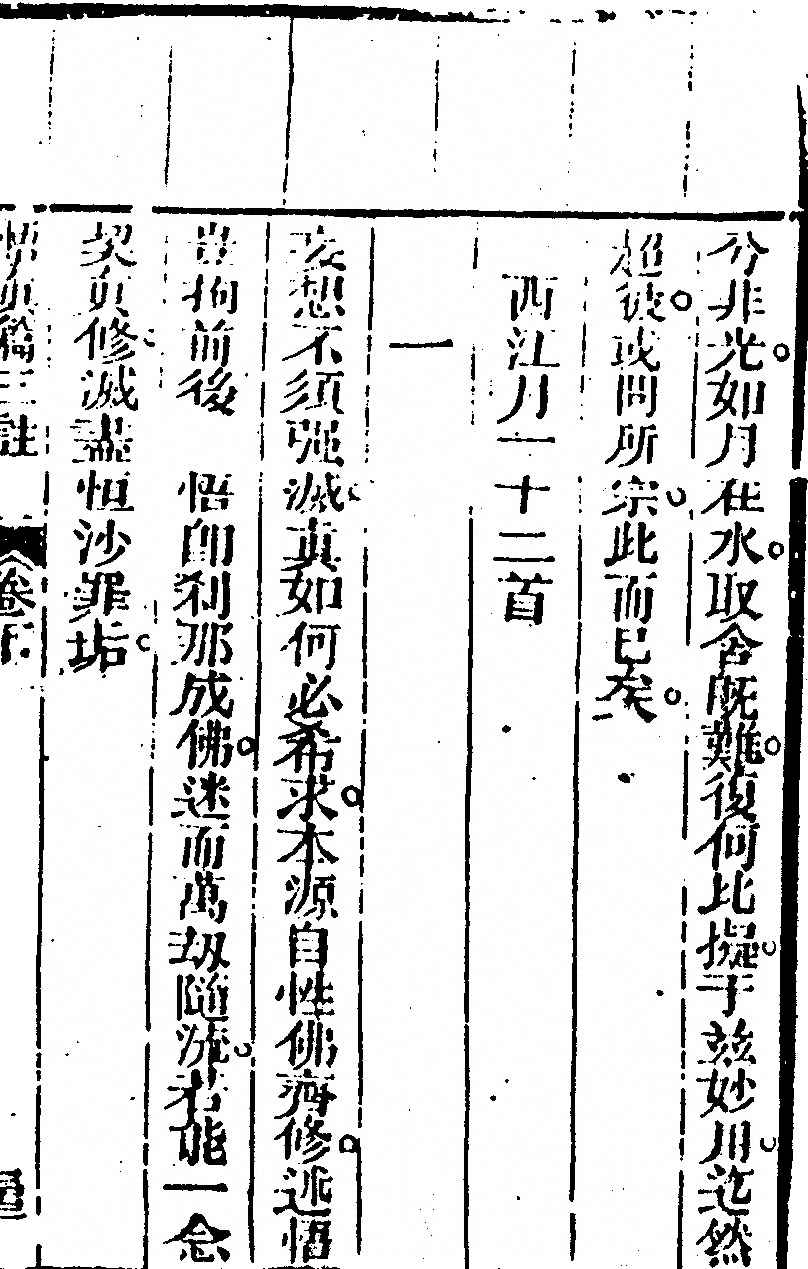 分非光如月在水取舍旣難復何比擬于茲妙用迄然
超彼或問所宗此而已矣
西江月一十二首
一
妄想不須强滅真如何必希求本源自性佛齊修迷悟
豈拘前後　悟卽刹那成佛迷而萬劫隨流若能一念
契真修滅盡恒沙罪垢
悟真篇三註　卷下